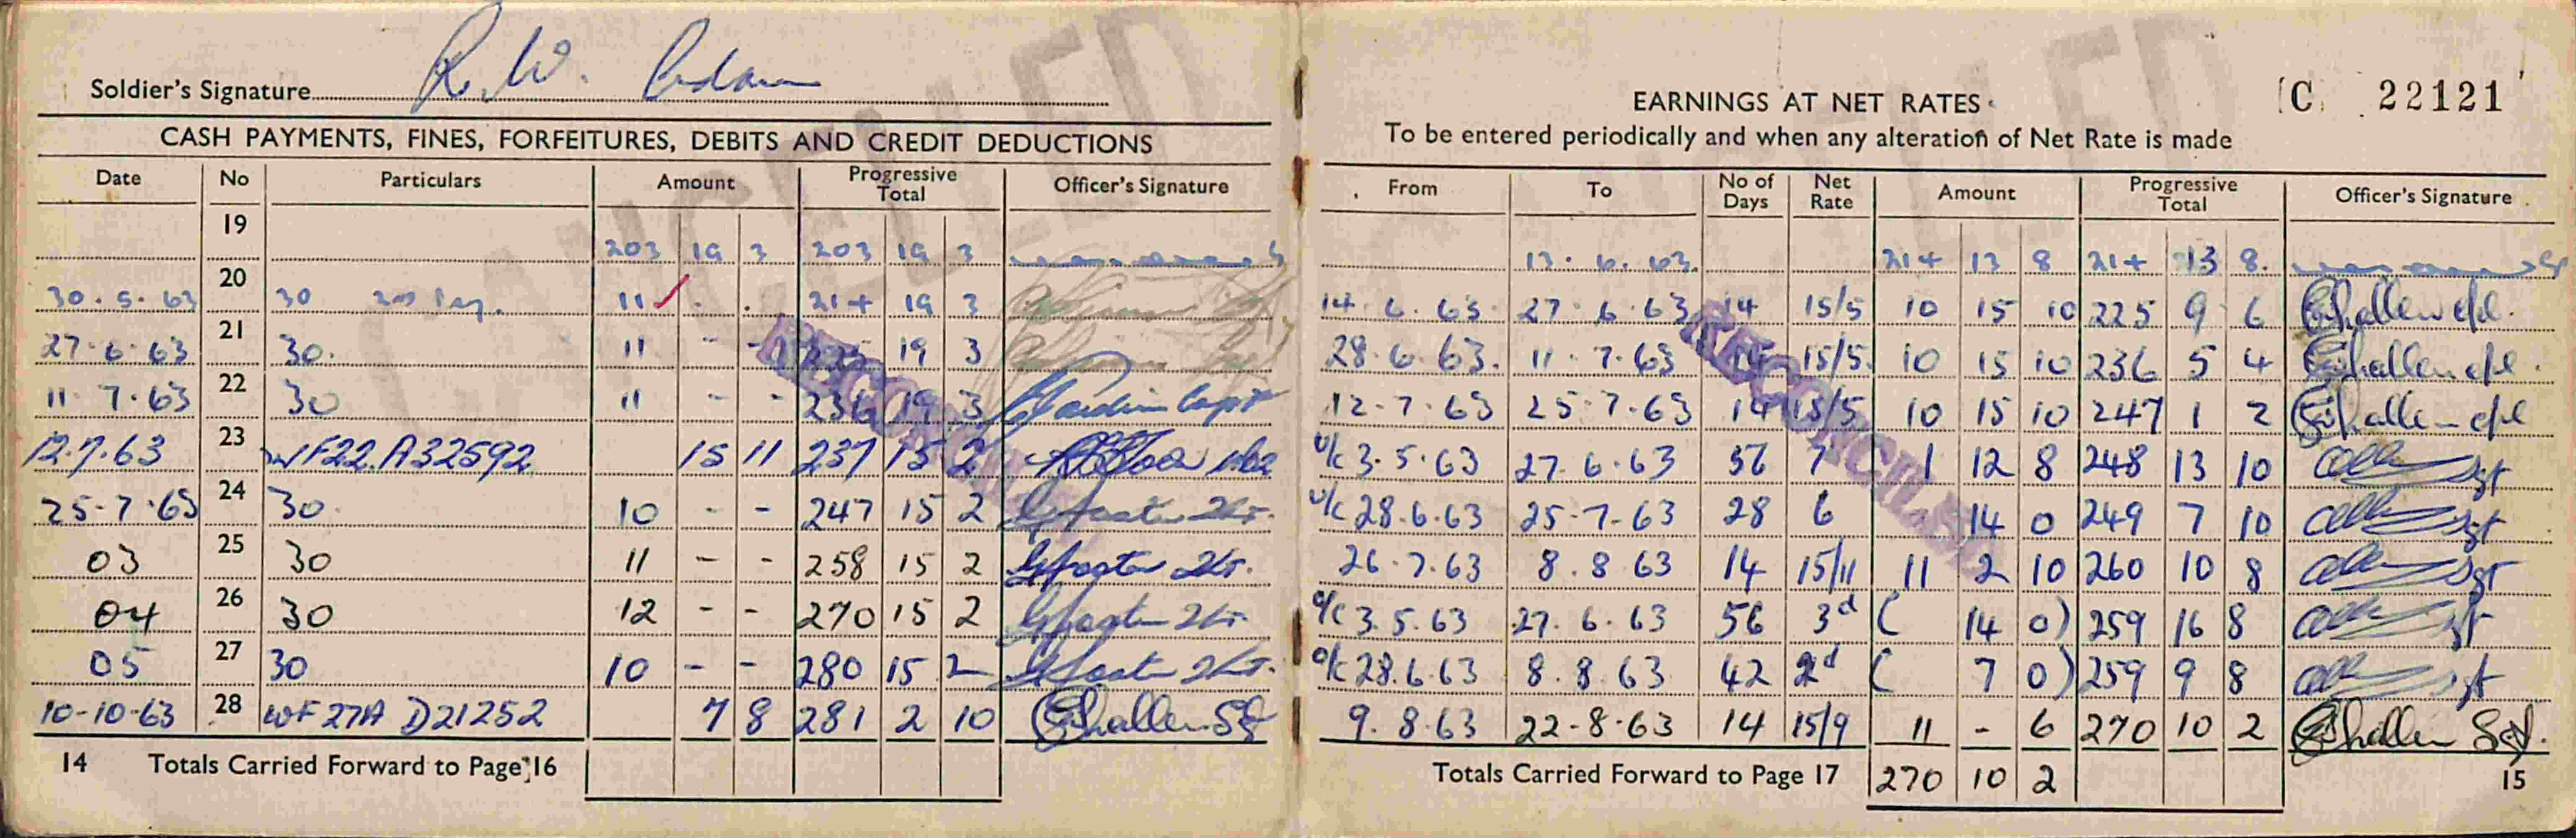 Soldier's Signature R. W.
CASH PAYMENTS, FINES, FORFEITURES, DEBITS AND CREDIT DEDUCTIONS
Date No Particulars Amount Progressive Total Officer's Signature
19 203 19 3 203 19 3
30.5.63 20 30 11 . . 214 19 3
27.6.63 21 30. 11 - - 225 19 3
11.7.63 22 30 11 - - 236 19 3 Capt
12.7.63 23 WF22.A32592 15 11 237 15 2
25-7-63 24 30. 10 - - 247 15 2
03 25 30 11 - - 258 15 2
04 26 30 12 - - 270 15 2
05 27 30 10 - - 280 15 2
10-10-63 28 WF27A D21252 7 8 281 2 10
14 Totals Carried Forward to Page 16
CANCELLED
RECONCILED
C 22121
EARNINGS AT NET RATES
To be entered periodically and when any alteration of Net Rate is made
From To No of Days Net Rate Amount Progressive Total Officer's Signature
13.6.63. 214 13 8 214 13 8.
14.6.63 27.6.63 14 15/5 10 15 10 225 9 6
28.6.63. 11.7.63 14 15/5. 10 15 10 236 5 4
12-7-63 25-7-63 14 15/5 10 15 10 247 1 2
U/C 3.5.63 27.6.63 56 7 1 12 8 248 13 10 Sgt
U/C 28.6.63 25-7-63 28 6 14 0 249 7 10 Sgt
26.7.63 8.8.63 14 15/11 11 2 10 260 10 8 Sgt
O/C 3.5.63 27.6.63 56 3d ( 14 0) 259 16 8 Sgt
O/C 28.6.63 8.8.63 42 2d ( 7 0) 259 9 8 Sgt
9.8.63 22-8-63 14 15/9 11 - 6 270 10 2 Sgt.
Totals Carried Forward to Page 17 270 10 2 15
RECONCILED